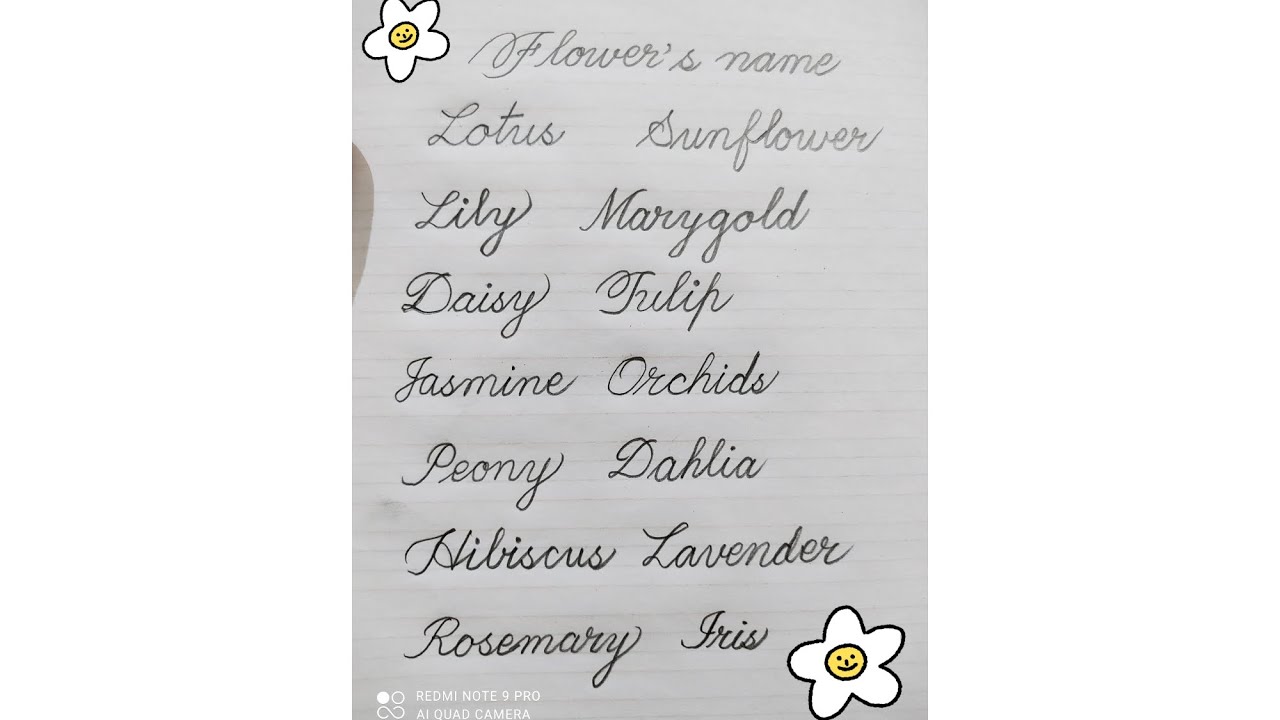 Flower's name
Lotus Sunflower
Lily Marygold
Daisy Tulip
Jasmine Orchids
Peony Dahlia
Hibiscus Lavender
Rosemary Iris
REDMI NOTE 9 PRO
AI QUAD CAMERA